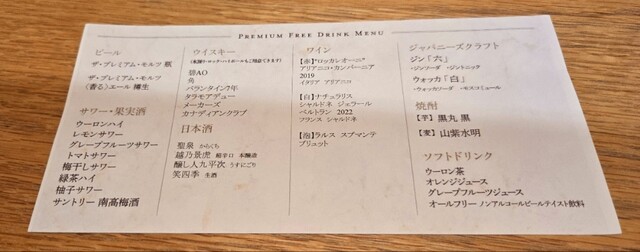 PREMIUM FREE DRINK MENU
ビール
ザ・プレミアム・モルツ 瓶
ザ・プレミアム・モルツ
〈香る〉エール 樽生
サワー・果実酒
ウーロンハイ
レモンサワー
グレープフルーツサワー
トマトサワー
梅干しサワー
緑茶ハイ
柚子サワー
サントリー 南高梅酒
ウイスキー
碧AO
バランタイン7年
タラモアデュー
メーカーズ
カナディアンクラブ
日本酒
聖泉 からくち
越乃景虎 超辛口 本醸造
醸し人九平次 うすにごり
笑四季 生酒
ワイン
【赤】"ロッカレオーニ"
アリアニコ・カンパーニア
2019
イタリア アリアニコ
【白】ナチュラリス
シャルドネ ジェラール
ベルトラン 2022
フランス シャルドネ
【泡】ラルス スプマンテ
ブリュット
ジャパニーズクラフト
ジン「六」
-ジンソーダ -ジントニック
ウォッカ「白」
-ウォッカソーダ -モスコミュール
焼酎
【芋】黒丸 黒
【麦】山紫水明
ソフトドリンク
ウーロン茶
オレンジジュース
グレープフルーツジュース
オールフリー ノンアルコールビールテイスト飲料